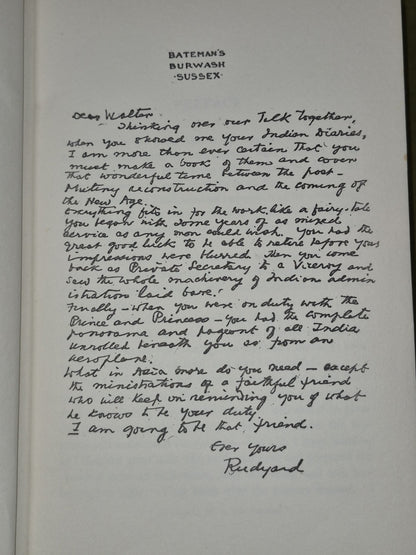 BATEMAN'S
BURWASH
·SUSSEX·
Dear Walter
Thinking over our Talk together,
when you showed me your Indian Diaries,
I am more than ever certain that you
must make a book of them and cover
that wonderful time between the post-
Mutiny reconstruction and the coming of
the New Age.
Everything fits in for the work, like a fairy-tale
You began with some years of as mixed
service as any man could wish. You had the
great good luck to be able to retire before your
impressions were blurred. Then you come
back as Private Secretary to a Viceroy and
saw the whole machinery of Indian admin
istration laid bare!
Finally – when you were on duty with the
Prince and Princess – you had the complete
panorama and pageant of all India
unrolled beneath you as from an
aeroplane.
What in Asia more do you need – except
the ministrations of a faithful friend
who will keep on reminding you of what
he knows to be your duty.
I am going to be that friend.
Ever yours
Rudyard